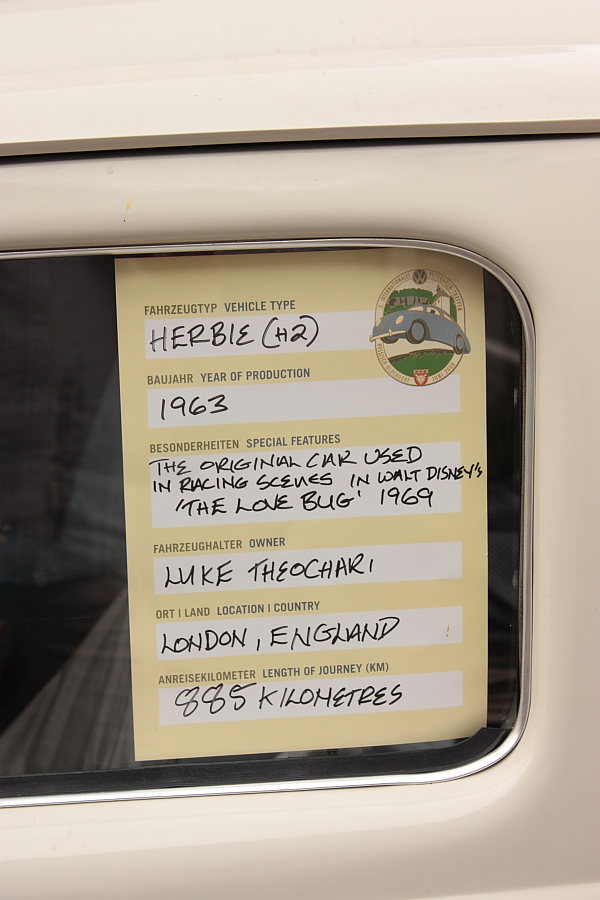 FAHRZEUGTYP VEHICLE TYPE
HERBIE (H2)
BAUJAHR YEAR OF PRODUCTION
1963
BESONDERHEITEN SPECIAL FEATURES
THE ORIGINAL CAR USED
IN RACING SCENES IN WALT DISNEY'S
'THE LOVE BUG' 1969
FAHRZEUGHALTER OWNER
LUKE THEOCHARI
ORT | LAND LOCATION | COUNTRY
LONDON, ENGLAND
ANREISEKILOMETER LENGTH OF JOURNEY (KM)
885 KILOMETRES